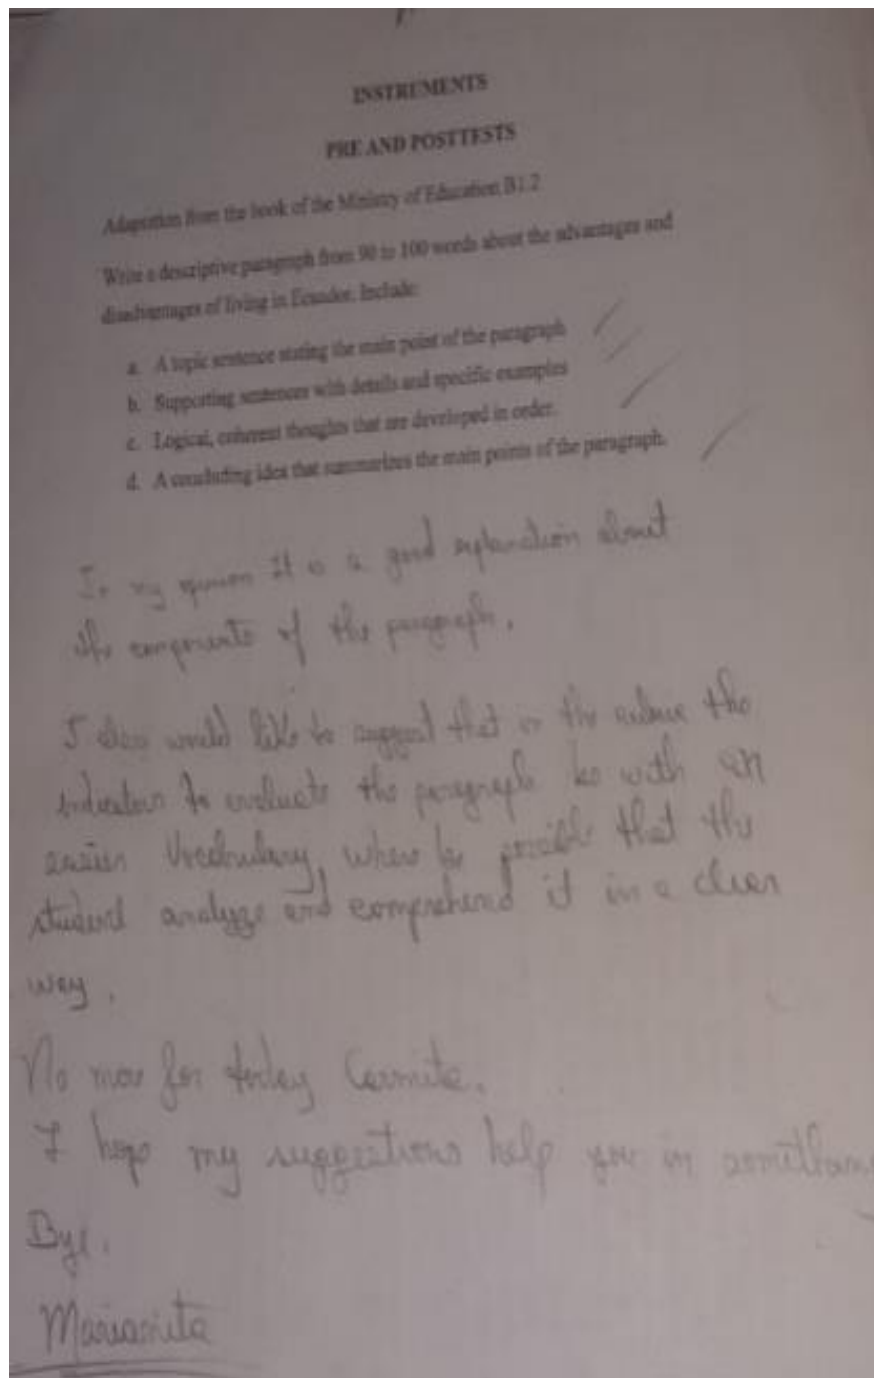 INSTRUMENTS
PRE AND POSTTESTS
Adaption from the book of the Ministry of Education B1.2
Write a descriptive paragraph from 90 to 100 words about the advantages and
disadvantages of living in Ecuador. Include:
a. A topic sentence stating the main point of the paragraph
b. Supporting sentences with details and specific examples
c. Logical, coherent thoughts that are developed in order.
d. A concluding idea that summarizes the main points of the paragraph.
In my opinion It is a good explanation about
the components of the paragraph.
I also would like to suggest that in the rubric the
indicators to evaluate the paragraph be with an
easier Vocabulary, where be possible that the
student analyze and comprehend it in a clear
way.
No more for today Carmita.
I hope my suggestions help you in
Bye.
Marianita